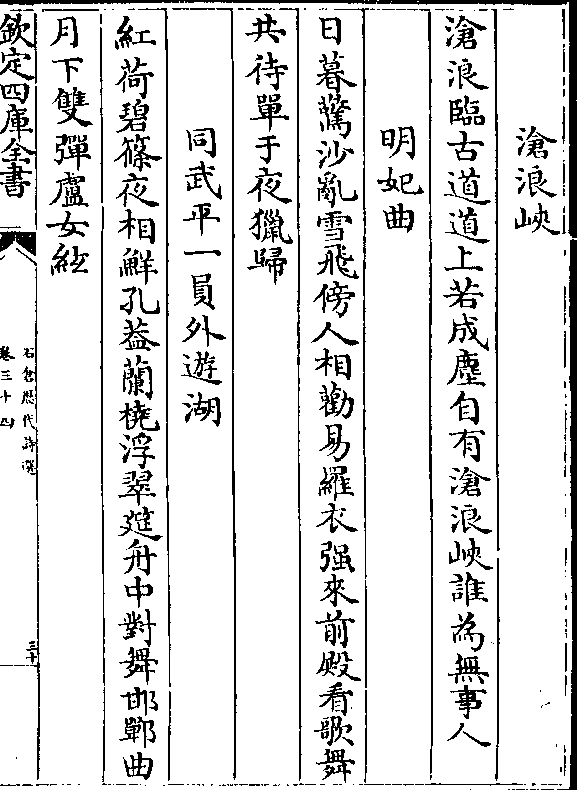 滄浪峽
滄浪臨古道道上若成塵自有滄浪峽誰為無事人
明妃曲
日暮驚沙亂雪飛傍人相勸易羅衣强來前殿看歌舞
共待單于夜獵歸
同武平一員外遊湖
紅荷碧篠夜相鮮孔葢蘭橈浮翠筵舟中對舞邯鄲曲
月下雙彈盧女絃
欽定四庫全書
石倉歷代詩選
卷三十四
三十